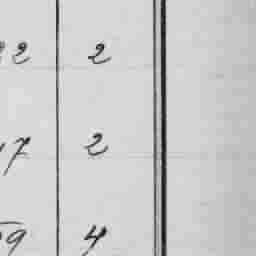 22 2
17 2
59 4